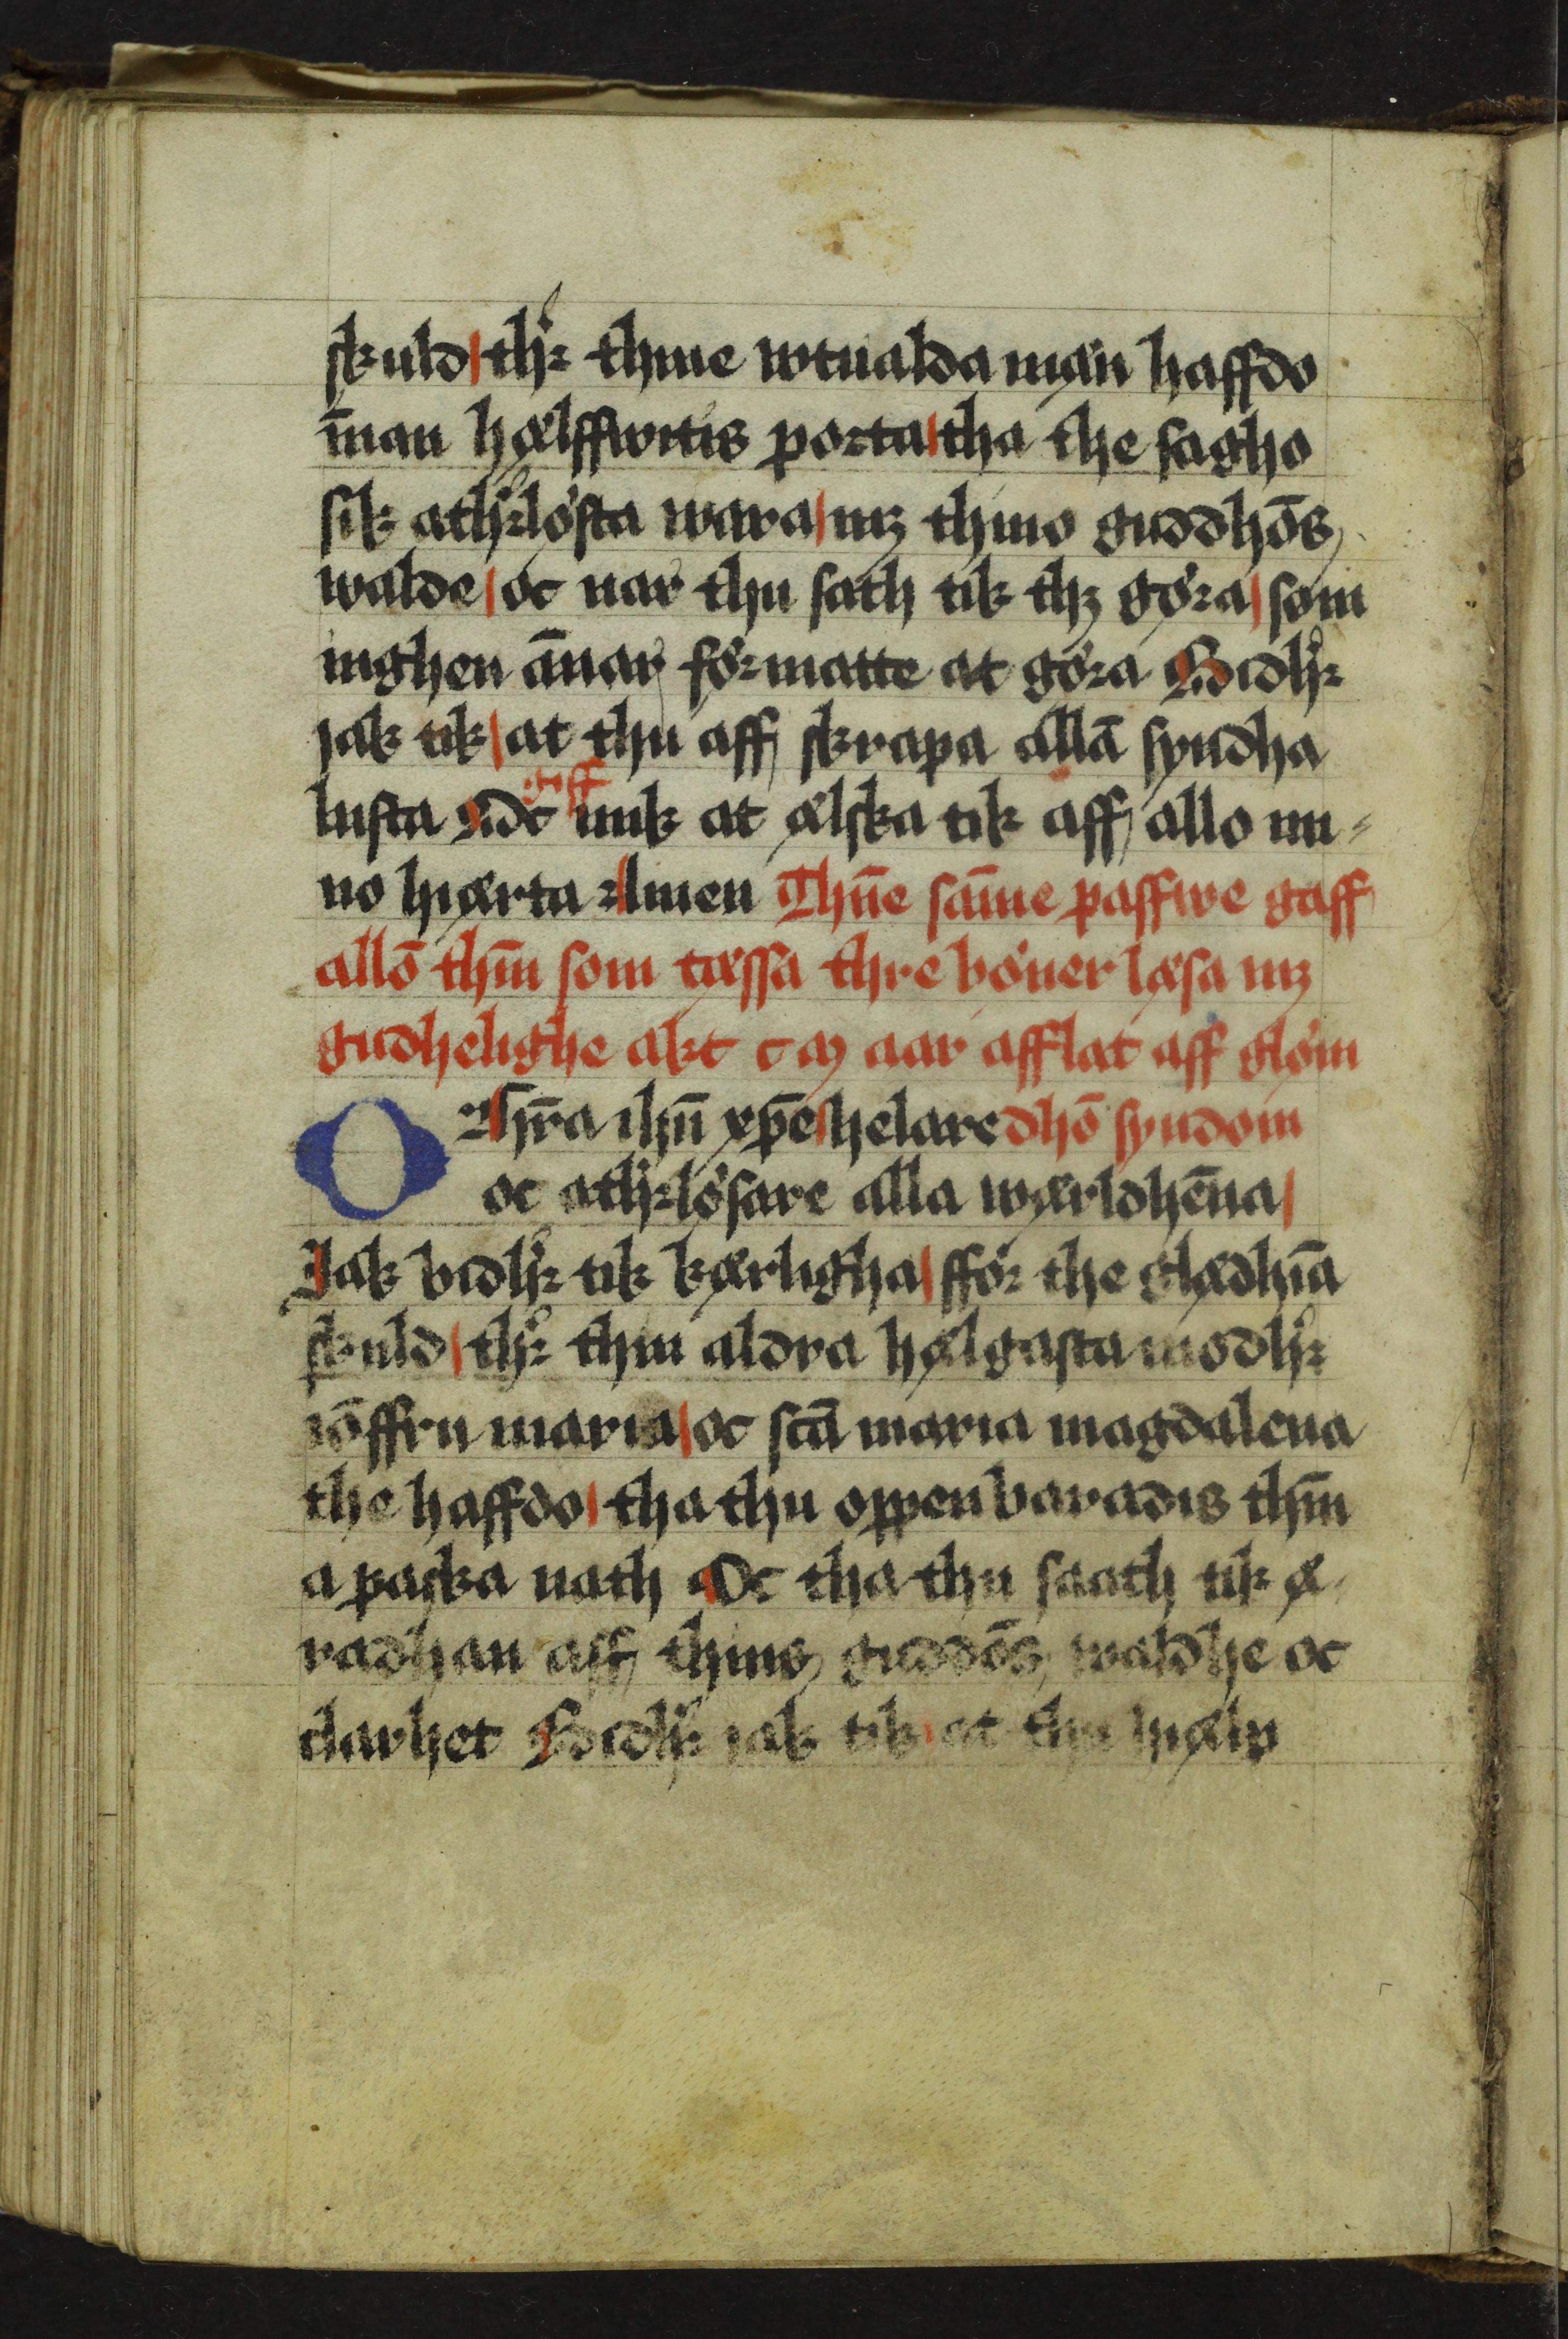 skuld thr thine wtualda mæn haffdo
īnan hælffwitis porta tha the sagho
sik athrlösta wara mz thino guddhōs
walde oc nar thu sath tik thz göra som
inghen ānar formatte at göra Bidhr
iak tik at thu aff skrapa allā syndha
lusta Oc giff mik at ælska tik aff allo mi
no hiærta Amen Thn̄e sām̄e paffwe gaff
allō thm̄ som tæssa thre böner læsa mz
gudhelighe akt c m aar afflat aff glöm
O Hr̄a ihū xp̄e helare dhō syndom
oc athrlösare alla wærldhēna
Jak bidhr tik kærligha ffor the glædhīa
skuld thr thin aldra hælgasta modhr
iōffru maria oc scā maria magdalena
the haffdo tha thu oppenbaradis thm̄
a paska nath Oc tha thu saath tik æ
radhan aff thins guddōs waldhe oc
clarhet Bidhr iak tik at thu hiælp